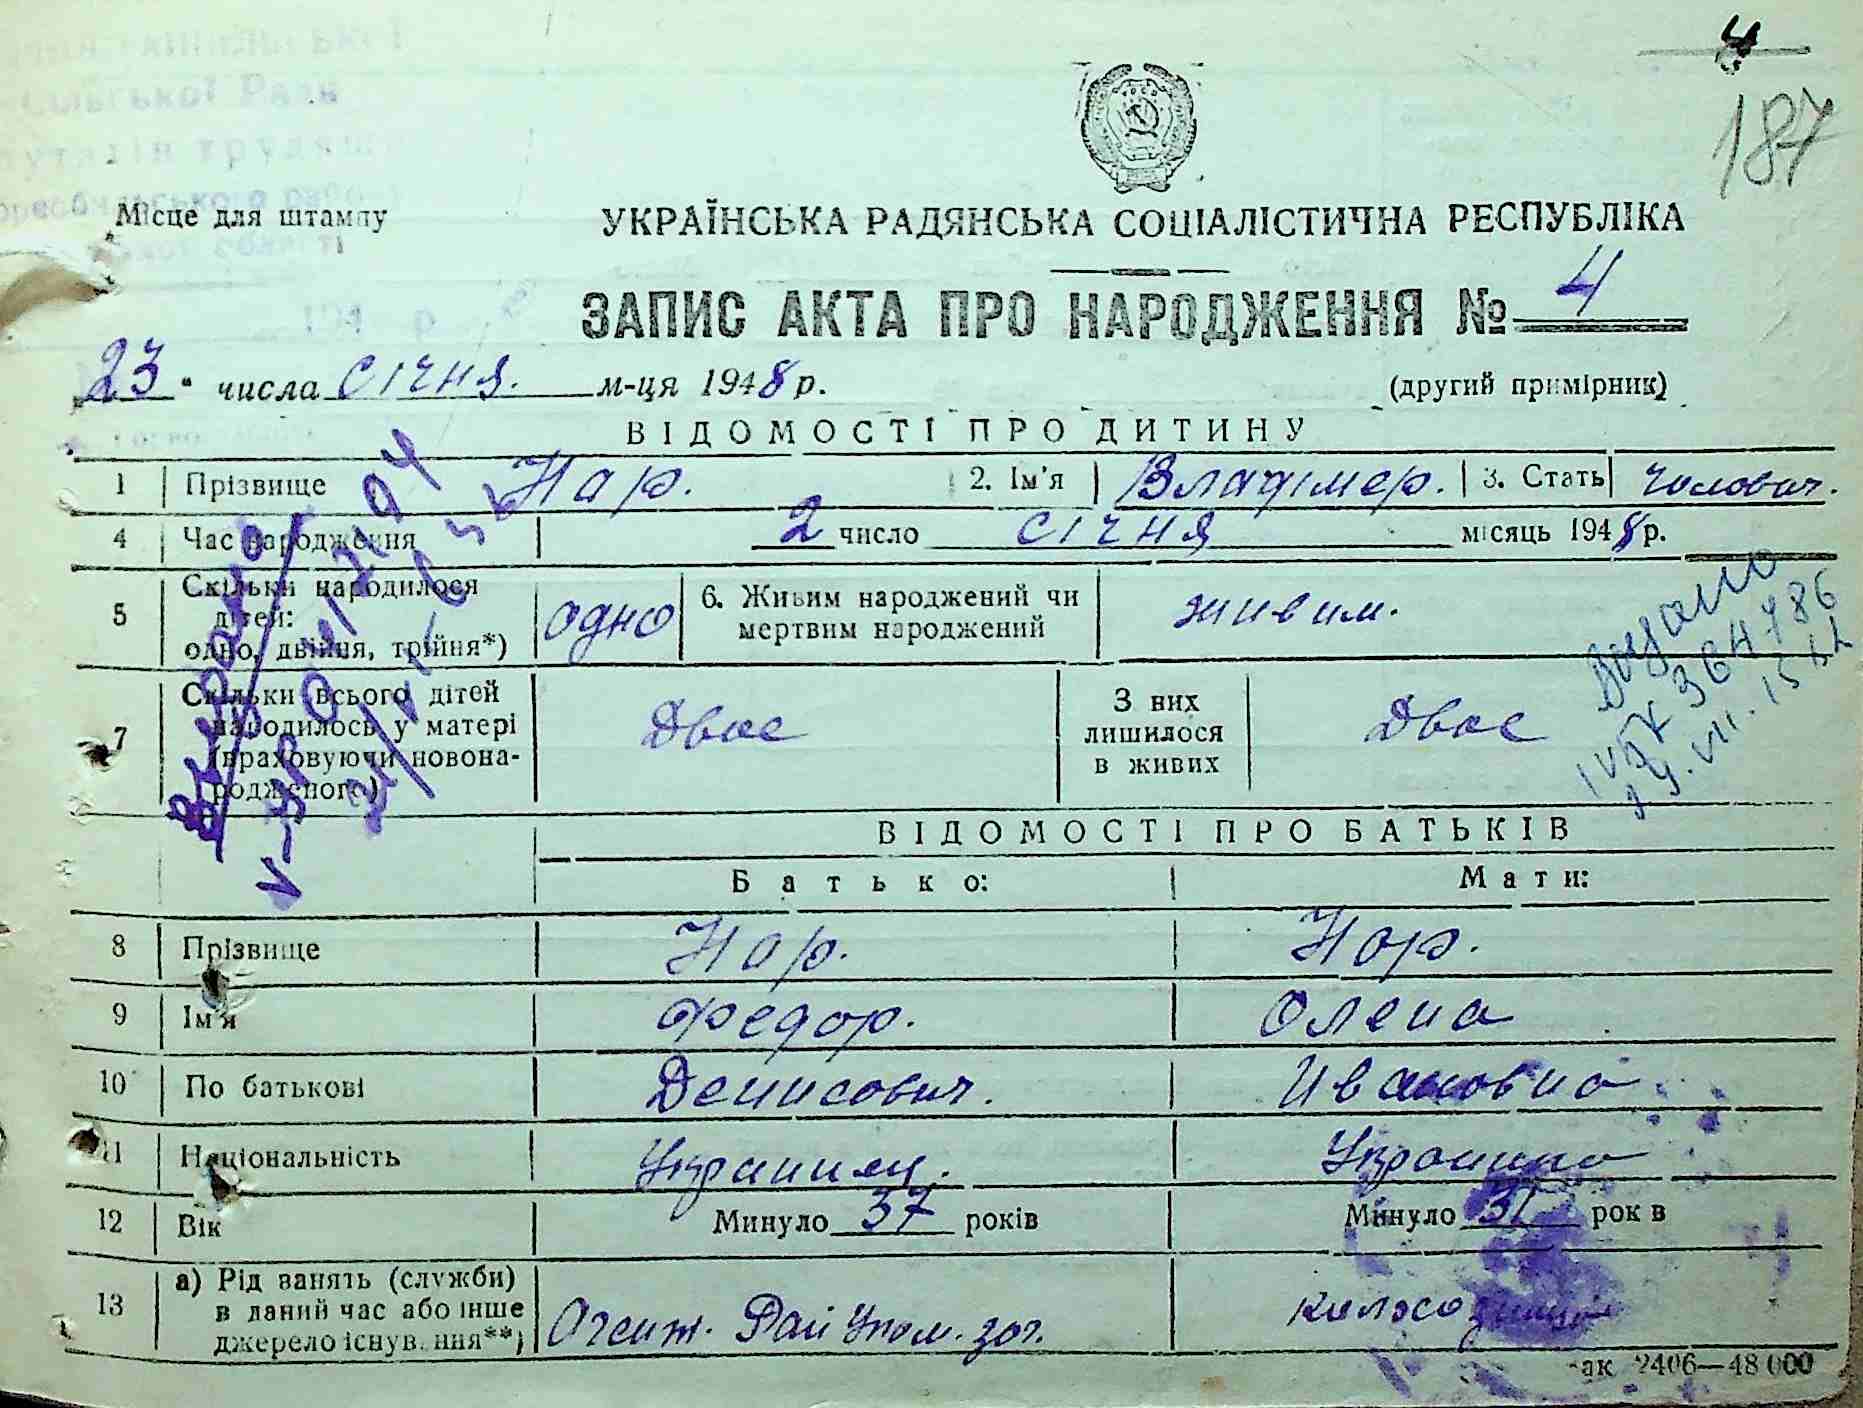 4
187
Сільської Ради
Місце для штампу
УКРАЇНСЬКА РАДЯНСЬКА СОЦІАЛІСТИЧНА РЕСПУБЛІКА
ЗАПИС АКТА ПРО НАРОДЖЕННЯ № 4
23 " числа січня. м-ця 1948 р.
(другий примірник)
ВІДОМОСТІ ПРО ДИТИНУ
1 Прізвище Нар. 2. Ім'я Владімер. 3. Стать чоловіч.
4 Час народження 2 число січня місяць 1948 р.
5 Скільки народилося дітей: одно, двійня, трійня*) одно 6. Живим народжений чи мертвим народжений живим.
7 Скільки всього дітей народилось у матері (враховуючи новонародженого) Двоє З них лишилося в живих Двоє
ВІДОМОСТІ ПРО БАТЬКІВ
Батько: Мати:
8 Прізвище Нар. Нар.
9 Ім'я Федор. Олена
10 По батькові Денисович. Ивановна
11 Національність Украинец. Украинка
12 Вік Минуло 37 років Минуло 31 років
13 а) Рід занять (служби) в даний час або інше джерело існування**) Агент. Рай Упом. заг. колхозниця
Зак 2406—48 000